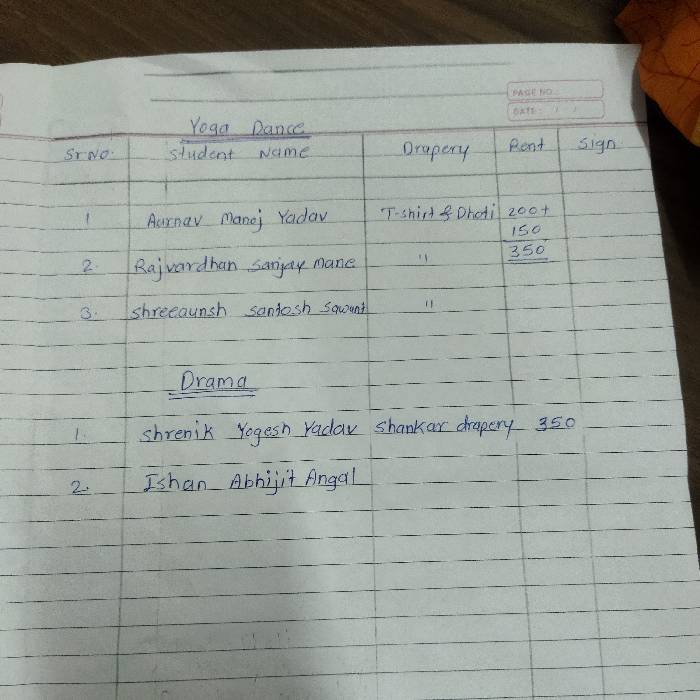 PAGE NO.
DATE: / /
Yoga Dance
Sr No. Student Name Drapery Rent Sign
1 Aarnav Manoj Yadav T-shirt & Dhoti 200+
150
2. Rajvardhan Sanjay Mane " 350
3. Shreeaunsh Santosh Sawant "
Drama
1. Shrenik Yogesh Yadav Shankar drapery 350
2. Ishan Abhijit Angal